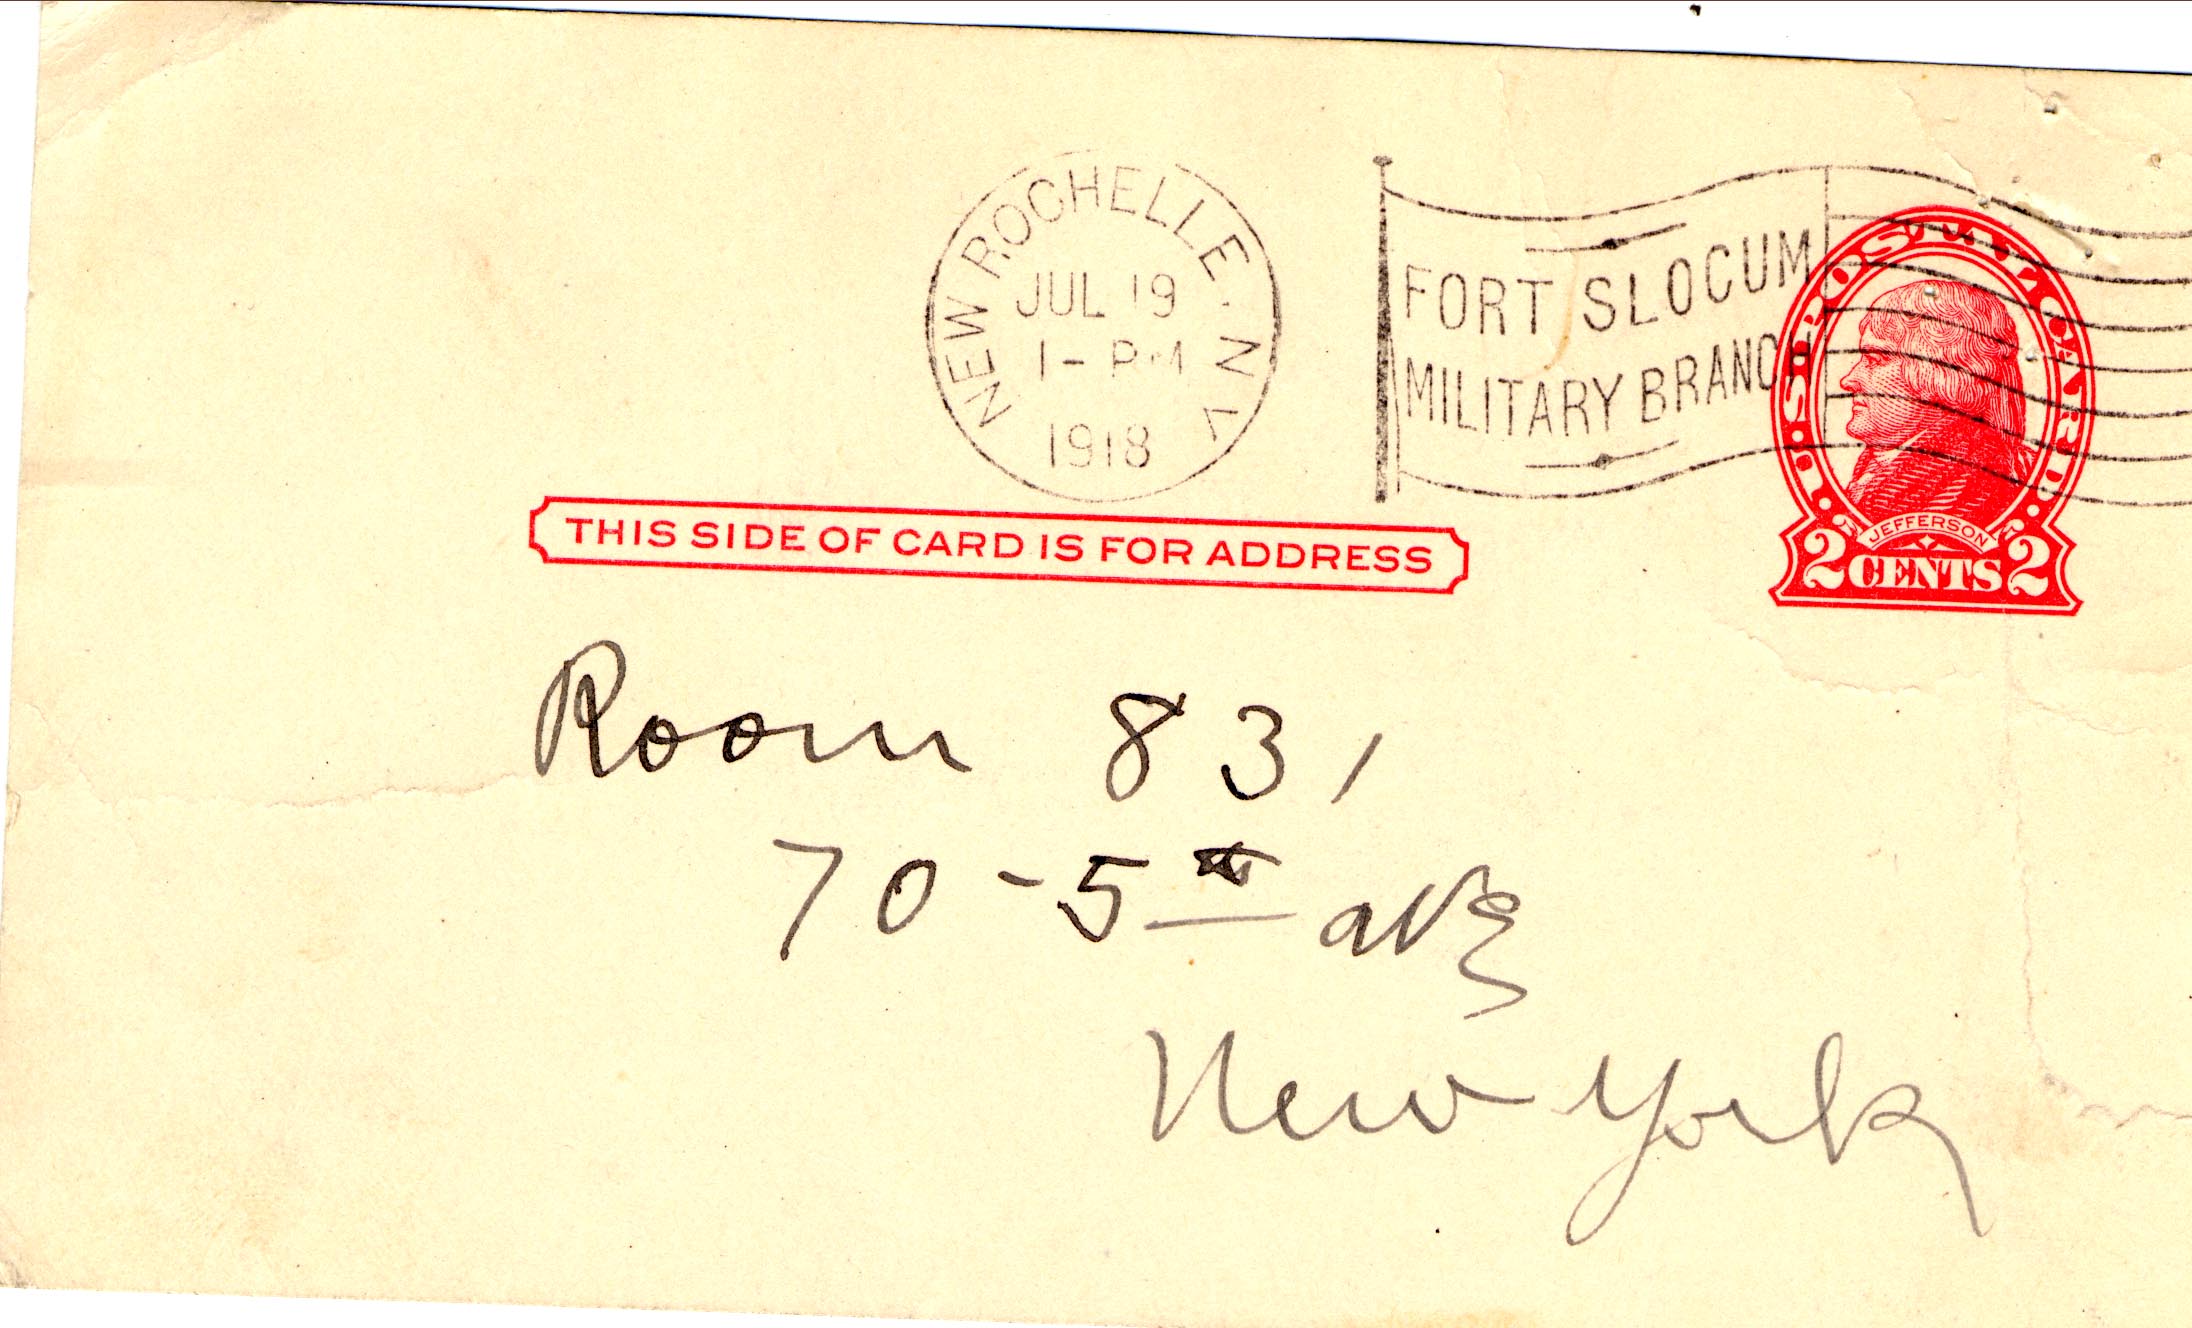 NEW ROCHELLE. N.Y.
JUL 19
1- PM
1918
FORT SLOCUM
MILITARY BRANCH
U.S. POSTAL CARD
JEFFERSON
2 CENTS 2
THIS SIDE OF CARD IS FOR ADDRESS
Room 831
70-5th ave
New York